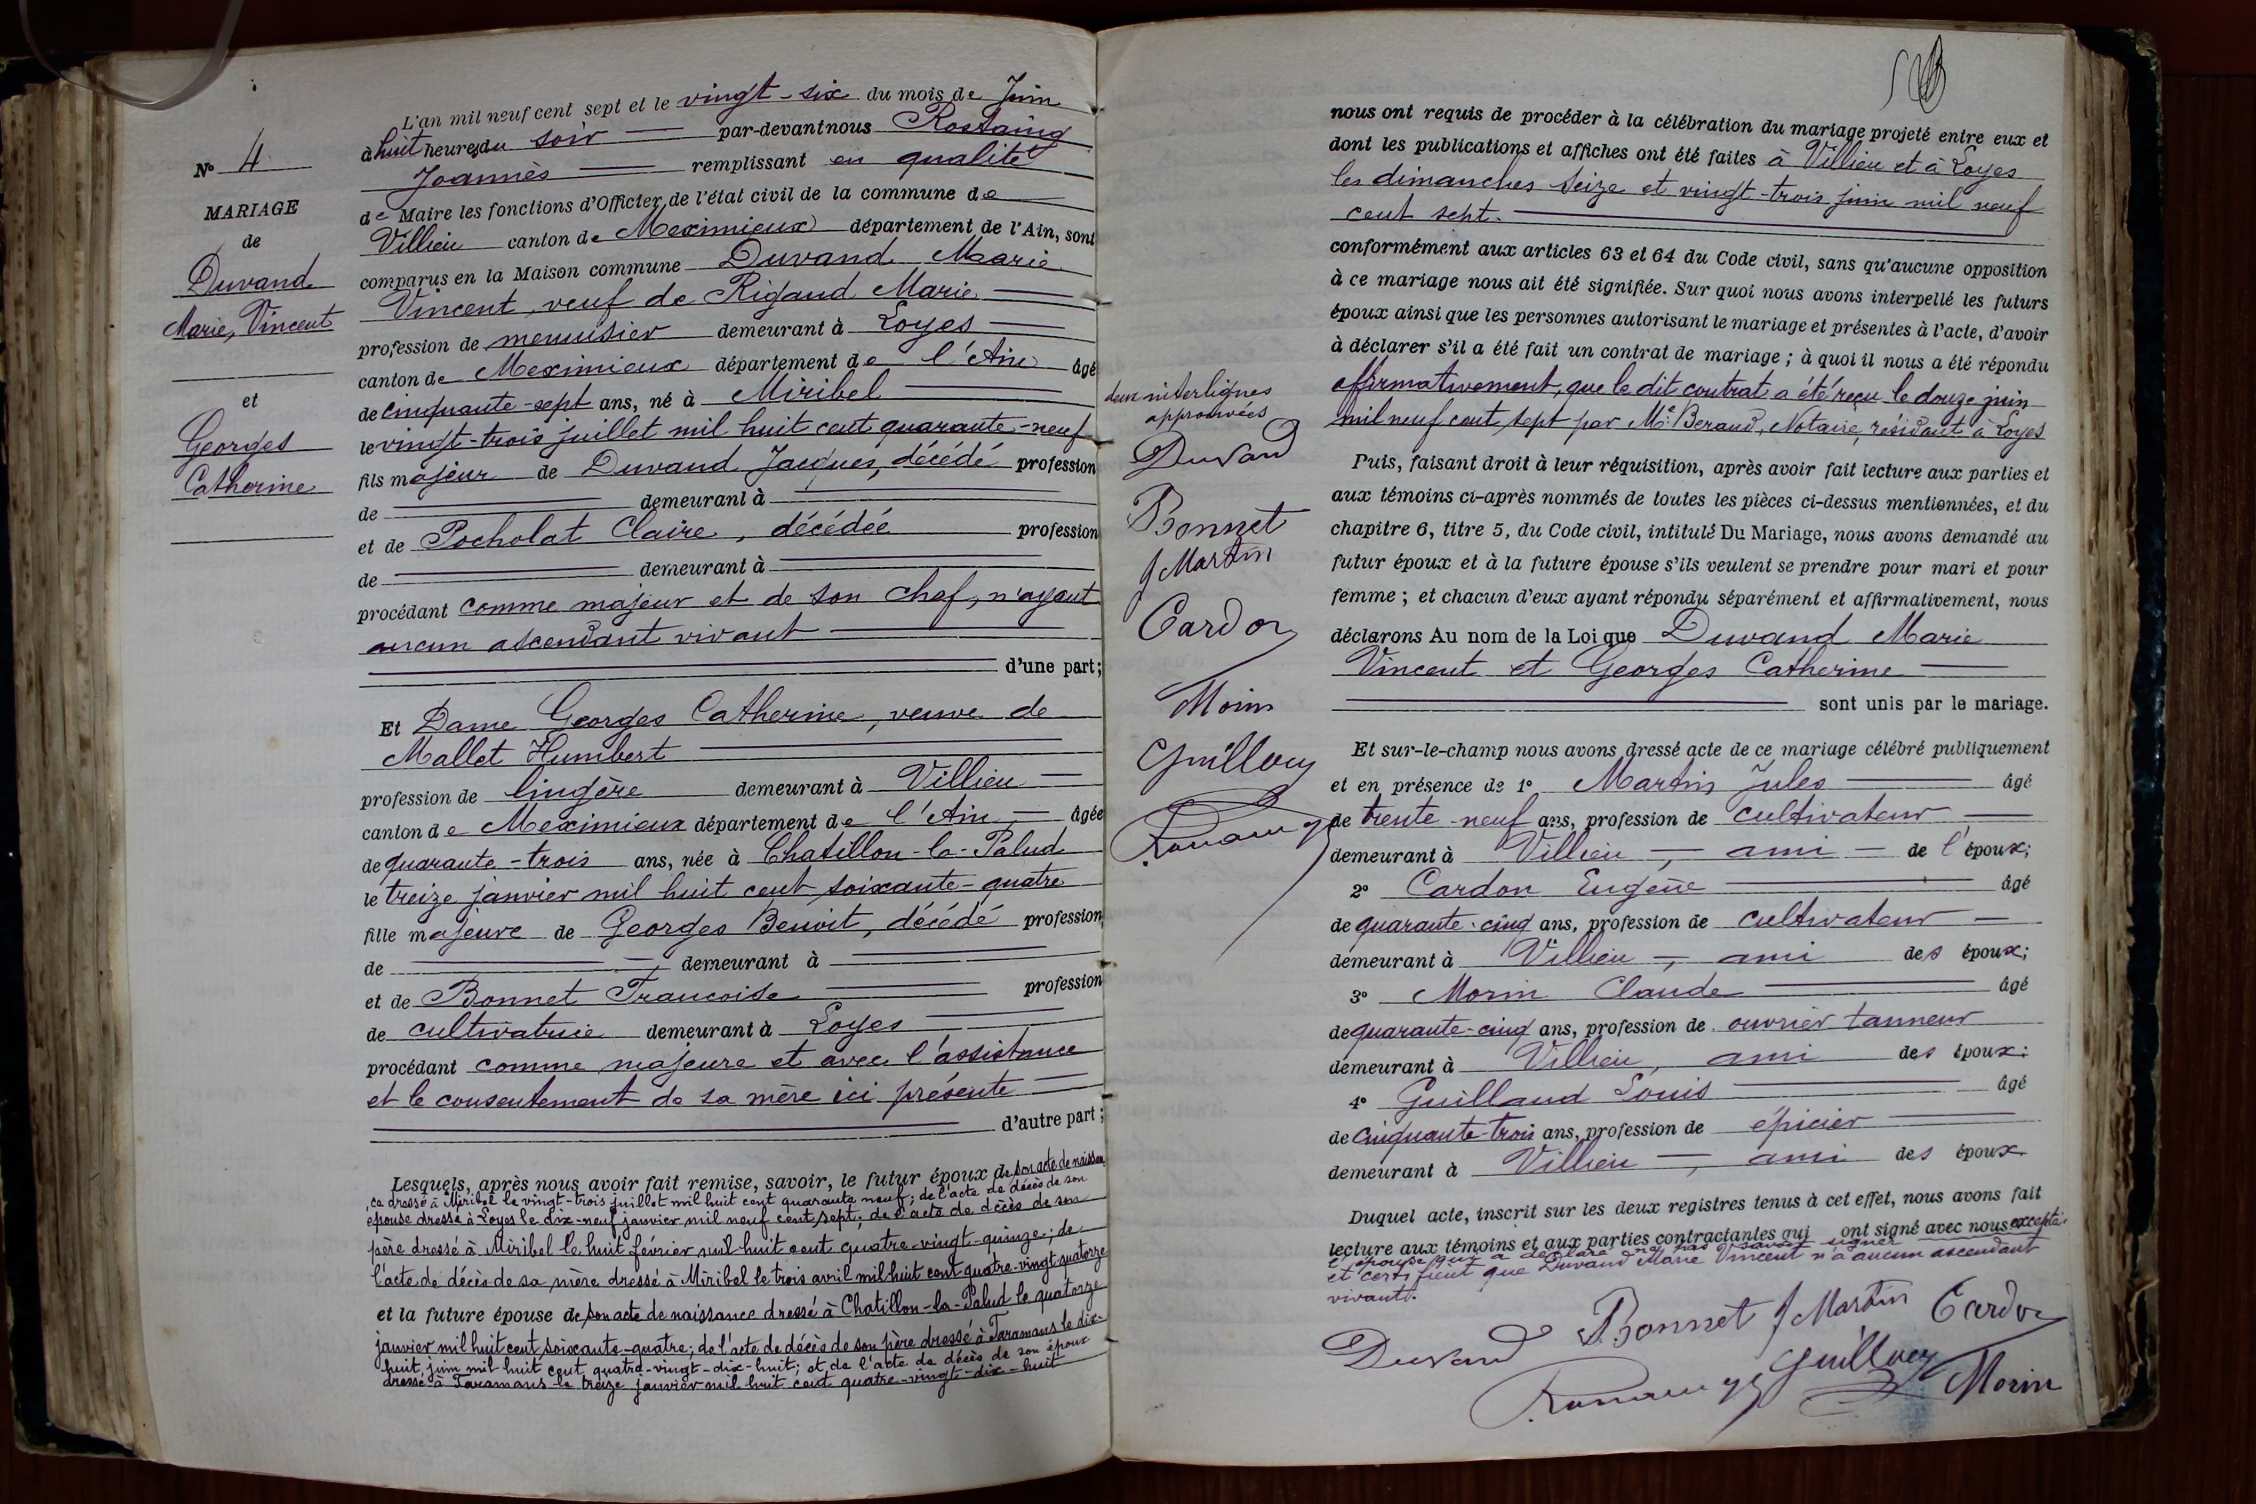 L'an mil neuf cent sept et le vingt-six du mois de Juin
à huit heures du soir par-devant nous Rostaing
Joannès remplissant en qualité
de Maire les fonctions d'Officier de l'état civil de la commune de
Villieu canton de Meximieux département de l'Ain, sont
comparus en la Maison commune Duvand Marie
Vincent, veuf de Rigaud Marie
profession de menuisier demeurant à Loyes
canton de Meximieux département de l'Ain âgé
de cinquante-sept ans, né à Miribel
le vingt-trois juillet mil huit cent quarante-neuf
fils majeur de Duvand Jacques, décédé profession
de demeurant à
et de Pocholat Claire, décédée profession
de demeurant à
procédant comme majeur et de son chef, n'ayant
aucun ascendant vivant
d'une part;
Et Dame Georges Catherine, veuve de
Mallet Humbert
profession de lingère demeurant à Villieu
canton de Meximieux département de l'Ain âgée
de quarante-trois ans, née à Chatillon-la-Palud
le treize janvier mil huit cent soixante-quatre
fille majeure de Georges Benoit, décédé profession
de demeurant à
et de Bonnet Francoise profession
de cultivatrice demeurant à Loyes
procédant comme majeure et avec l'assistance
et le consentement de sa mère ici présente
d'autre part;
Lesquels, après nous avoir fait remise, savoir, le futur époux de son acte de naissan
ce dressé à Miribel le vingt-trois juillet mil huit cent quarante neuf; de l'acte de décès de son
épouse dressé à Loyes le dix-neuf janvier mil neuf cent sept; de l'acte de décès de son
père dressé à Miribel le huit février mil huit cent quatre-vingt-quinze; de
l'acte de décès de sa mère dressé à Miribel le trois avril mil huit cent quatre-vingt quatorze
et la future épouse de son acte de naissance dressé à Chatillon-la-Palud le quatorze
janvier mil huit cent soixante-quatre; de l'acte de décès de son père dressé à Faramans le dix-
huit juin mil huit cent quatre-vingt-dix-huit; et de l'acte de décès de son époux
dressé à Faramans le treize janvier mil huit cent quatre-vingt-dix-huit
N° 4
MARIAGE
de
Duvand
Marie, Vincent
et
Georges
Catherine
nous ont requis de procéder à la célébration du mariage projeté entre eux et
dont les publications et affiches ont été faites à Villieu et à Loyes
les dimanches seize et vingt-trois juin mil neuf
cent sept.
conformément aux articles 63 et 64 du Code civil, sans qu'aucune opposition
à ce mariage nous ait été signifiée. Sur quoi nous avons interpellé les futurs
époux ainsi que les personnes autorisant le mariage et présentes à l'acte, d'avoir
à déclarer s'il a été fait un contrat de mariage; à quoi il nous a été répondu
affirmativement, que le dit contrat a été reçu le douze juin
mil neuf cent sept par Me Beraud, Notaire, résidant à Loyes
Puis, faisant droit à leur réquisition, après avoir fait lecture aux parties et
aux témoins ci-après nommés de toutes les pièces ci-dessus mentionnées, et du
chapitre 6, titre 5, du Code civil, intitulé Du Mariage, nous avons demandé au
futur époux et à la future épouse s'ils veulent se prendre pour mari et pour
femme; et chacun d'eux ayant répondu séparément et affirmativement, nous
déclarons Au nom de la Loi que Duvand Marie
Vincent et Georges Catherine
sont unis par le mariage.
Et sur-le-champ nous avons dressé acte de ce mariage célébré publiquement
et en présence de 1° Martin Jules âgé
de trente-neuf ans, profession de cultivateur
demeurant à Villieu, ami de l'époux;
2° Cardon Eugène âgé
de quarante-cinq ans, profession de cultivateur
demeurant à Villieu, ami des époux;
3° Morin Claude âgé
de quarante-cinq ans, profession de ouvrier tanneur
demeurant à Villieu, ami des époux;
4° Guilland Louis âgé
de cinquante-trois ans, profession de épicier
demeurant à Villieu, ami des époux
Duquel acte, inscrit sur les deux registres tenus à cet effet, nous avons fait
lecture aux témoins et aux parties contractantes qui ont signé avec nous excepté
l'épouse qui a déclaré ne pas savoir signer
et certifient que Duvand Marie Vincent n'a aucun ascendant
vivant.
Duvand Bonnet J Martin Cardon
Morin
deux interlignes
approuvées
Duvand
Bonnet
J Martin
Cardon
Morin